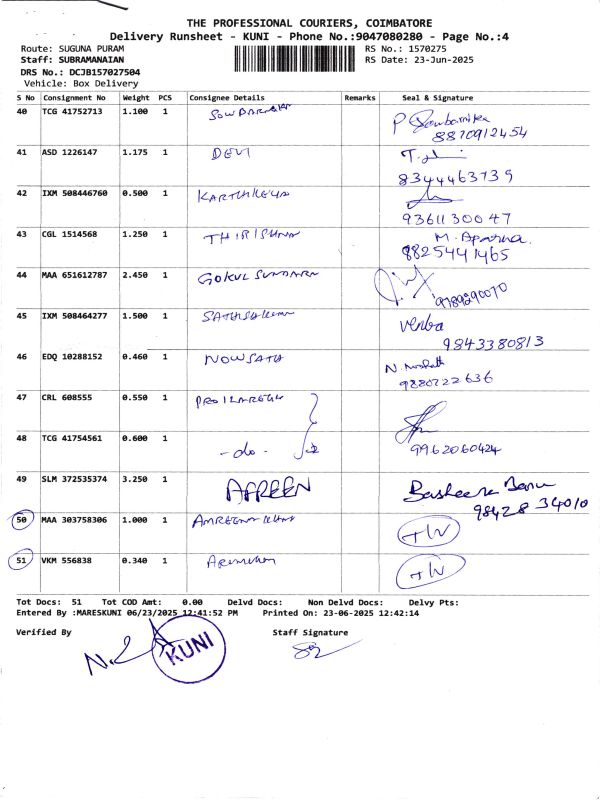 THE PROFESSIONAL COURIERS, COIMBATORE
Delivery Runsheet - KUNI - Phone No.:9047080280 - Page No.:4
Route: SUGUNA PURAM RS No.: 1570275
Staff: SUBRAMANAIAN RS Date: 23-Jun-2025
DRS No.: DCJB157027504
Vehicle: Box Delivery
S No Consignment No Weight PCS Consignee Details Remarks Seal & Signature
40 TCG 41752713 1.100 1
8870912454
41 ASD 1226147 1.175 1 DEVI
8344463739
42 IXM 508446760 0.500 1 KARTHIKEYA
9361130047
43 CGL 1514568 1.250 1 THIRISHNA M. Aparna
8825441465
44 MAA 651612787 2.450 1 GOKUL SUNDARA
9789290070
45 IXM 508464277 1.500 1 Venba
9843380813
46 EDQ 10288152 0.460 1 NOWSATH
9880722636
47 CRL 608555 0.550 1
48 TCG 41754561 0.600 1 -do-
9962060424
49 SLM 372535374 3.250 1 AFREEN Basheera Banu
98428 34010
50 MAA 303758306 1.000 1
51 VKM 556838 0.340 1
Tot Docs: 51 Tot COD Amt: 0.00 Delvd Docs: Non Delvd Docs: Delvy Pts:
Entered By :MARESKUNI 06/23/2025 12:41:52 PM Printed On: 23-06-2025 12:42:14
Verified By Staff Signature
KUNI